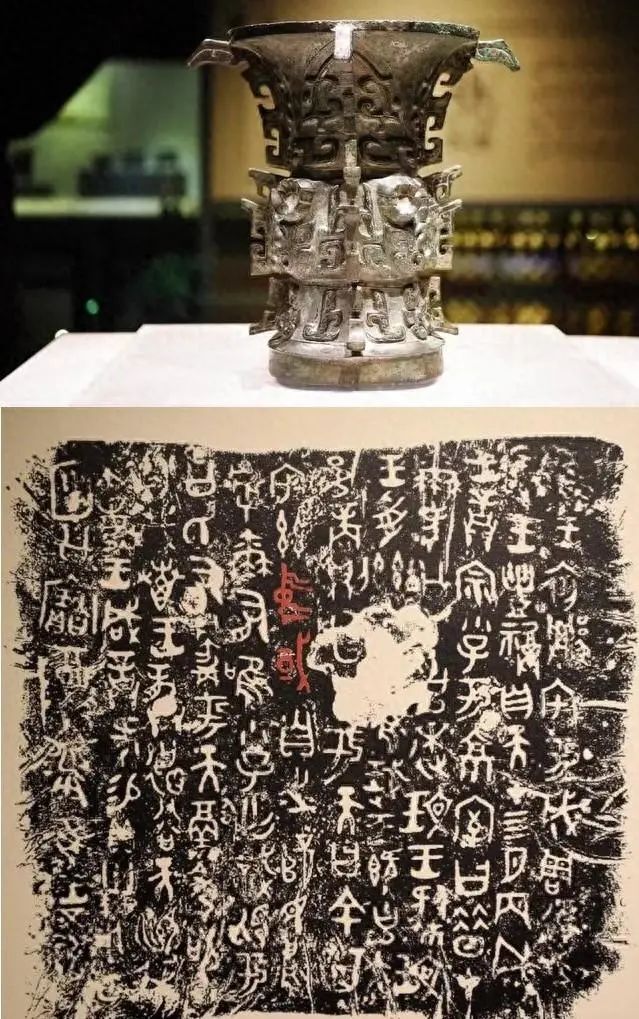 隹王初遷宅于成周復
珷王豐福自天才四月丙戌
王誥宗小子于京室曰昔才
爾考公氏克逨玟王肆玟
王受茲隹珷王既克大
邑商則廷告于天曰余其
宅茲中或自之乂民烏
虖爾有唯小子亡識視于
公氏有爵于天徹令敬
享哉叀王龏德谷天順我
不敏王咸誥何易貝卅朋用乍
公寶尊彝隹王五祀